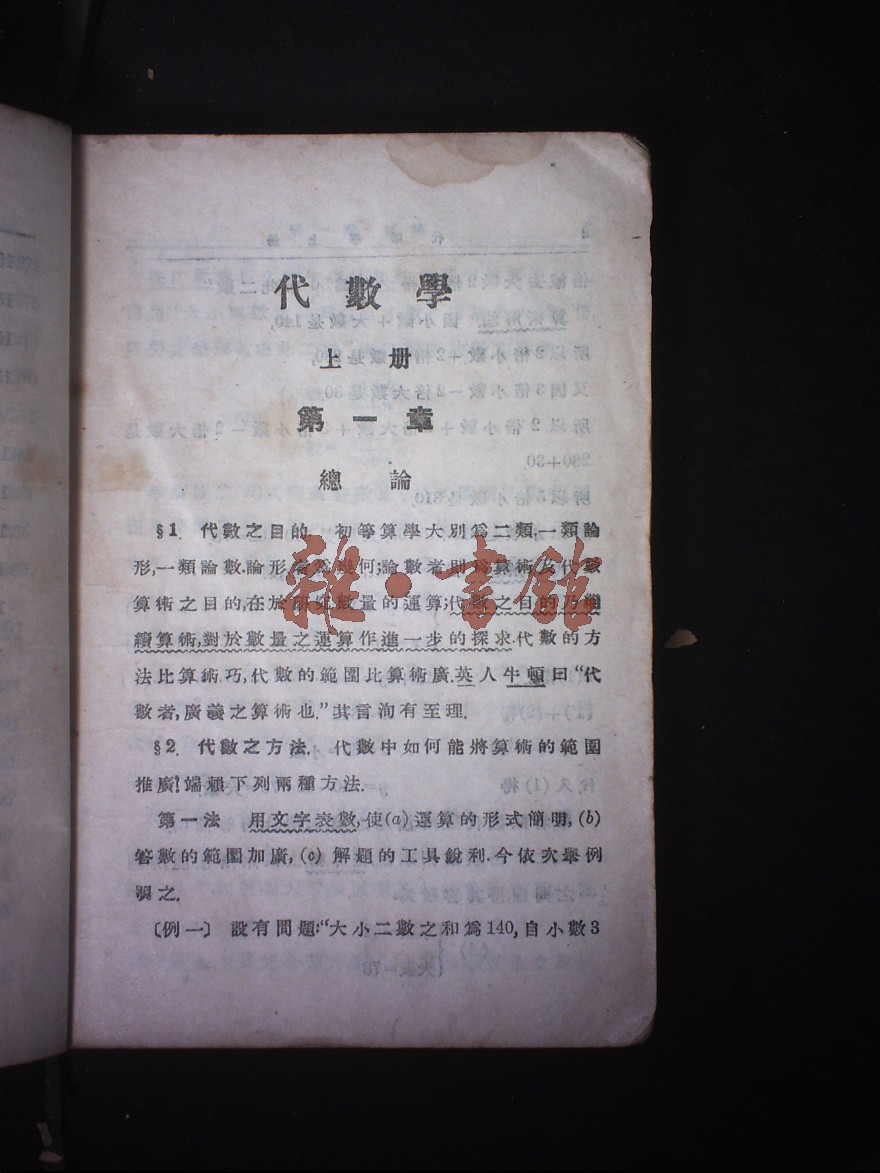 代數學
上册
第一章
總論
§1. 代數之目的 初等算學大別爲二類,一類論
形,一類論數.論形者爲幾何;論數者別爲算術及代數
算術之目的,在於研究數量的運算;代數之目的乃繼
續算術,對於數量之運算作進一步的探求.代數的方
法比算術巧,代數的範圍比算術廣.英人牛頓曰“代
數者,廣義之算術也.”其言洵有至理.
§2. 代數之方法. 代數中如何能將算術的範圍
推廣?端賴下列兩種方法.
第一法 用文字表數,使(a)運算的形式簡明,(b)
答數的範圍加廣,(c)解題的工具銳利.今依次舉例
明之.
〔例一〕 設有問題:“大小二數之和爲140,自小數3
雜·書館